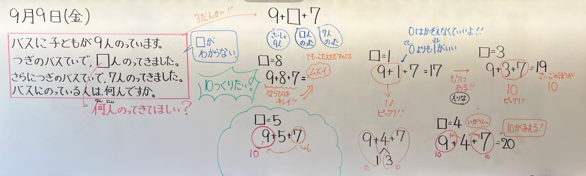 9月9日(金)
バスに子どもが9人のっています。
つぎのバスていで、□人のってきました。
さらにつぎのバスていで、7人のってきました。
バスにのっている人は、何人ですか。
何人のってきてほしい?
3だんだい!!
9+□+7
さいしょ 9人
□人 のった
7人 のった
□が
わからない。
10つくりたい!
□=8
9+8+7=
ムズイ
ならびは
キレイ!
□=5
9+5+7
10
6
0はかぞえなくていいよ!!
0よりも1がいい
□=1
9+1+7=17
ピッタリ!
もう1つ
ある!
□=3
9+3+7=19
10
10
ピッタリ!
さいごの
9+4+7
1 3
□=4
9+4+7=20
10
10
10がみえる!